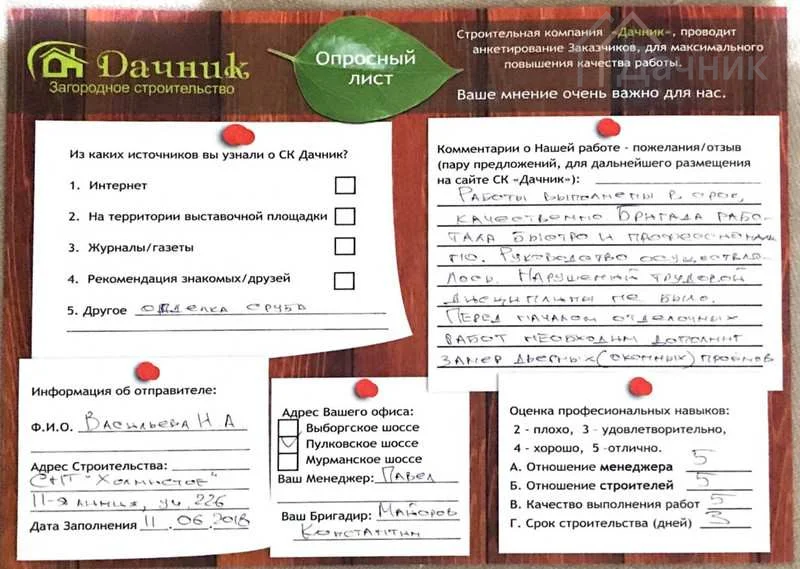 Дачник
Загородное строительство
Опросный
лист
Строительная компания «Дачник», проводит
анкетирование Заказчиков, для максимального
повышения качества работы.
Ваше мнение очень важно для нас.
Дачник
Из каких источников вы узнали о СК Дачник?
1. Интернет
2. На территории выставочной площадки
3. Журналы/газеты
4. Рекомендация знакомых/друзей
5. Другое отделка сруба
Комментарии о Нашей работе - пожелания/отзыв
(пару предложений, для дальнейшего размещения
на сайте СК «Дачник»):
Работы выполнены в срок,
качественно Бригада рабо-
тала быстро и профессиональ
но. Руководство осуществля-
лось. Нарушений трудовой
дисциплины не было.
Перед началом отделочных
работ необходим дополнит
замер дверных (оконных) проемов
Информация об отправителе:
Ф.И.О. Васильева Н А
Адрес Строительства:
СНТ "Холмистое"
11-я линия, уч. 226
Дата Заполнения 11.06.2018
Адрес Вашего офиса:
Выборгское шоссе
Пулковское шоссе
Мурманское шоссе
Ваш Менеджер: Павел
Ваш Бригадир: Майоров
Константин
Оценка професиональных навыков:
2 - плохо, 3 - удовлетворительно,
4 - хорошо, 5 -отлично.
А. Отношение менеджера 5
Б. Отношение строителей 5
В. Качество выполнения работ 5
Г. Срок строительства (дней) 3